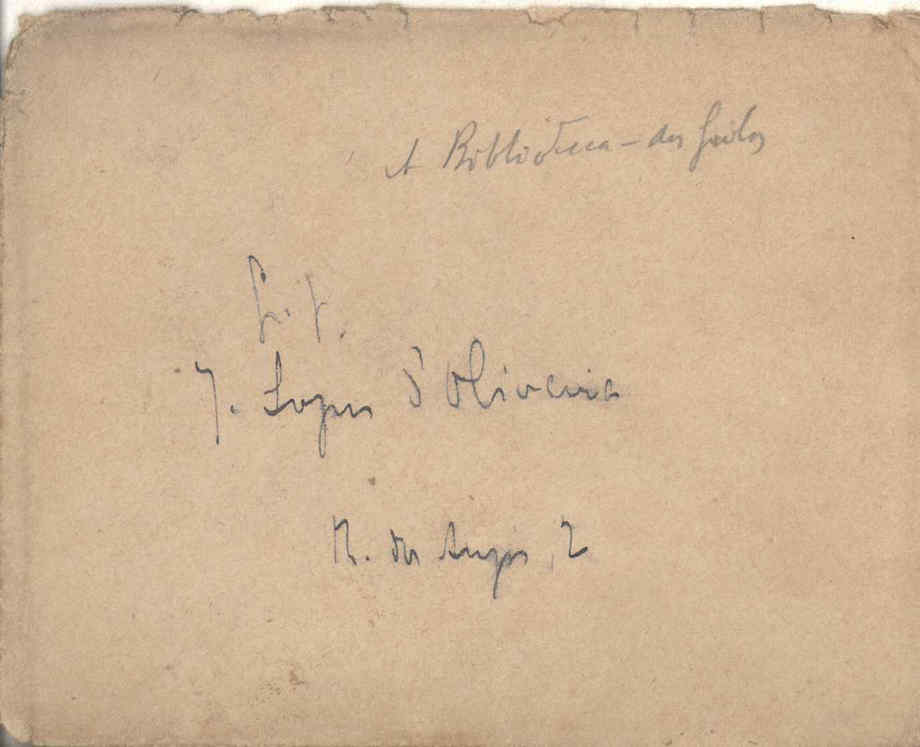 A Biblioteca -
J. Lopes d'Oliveira
R. dos Anjos, 2